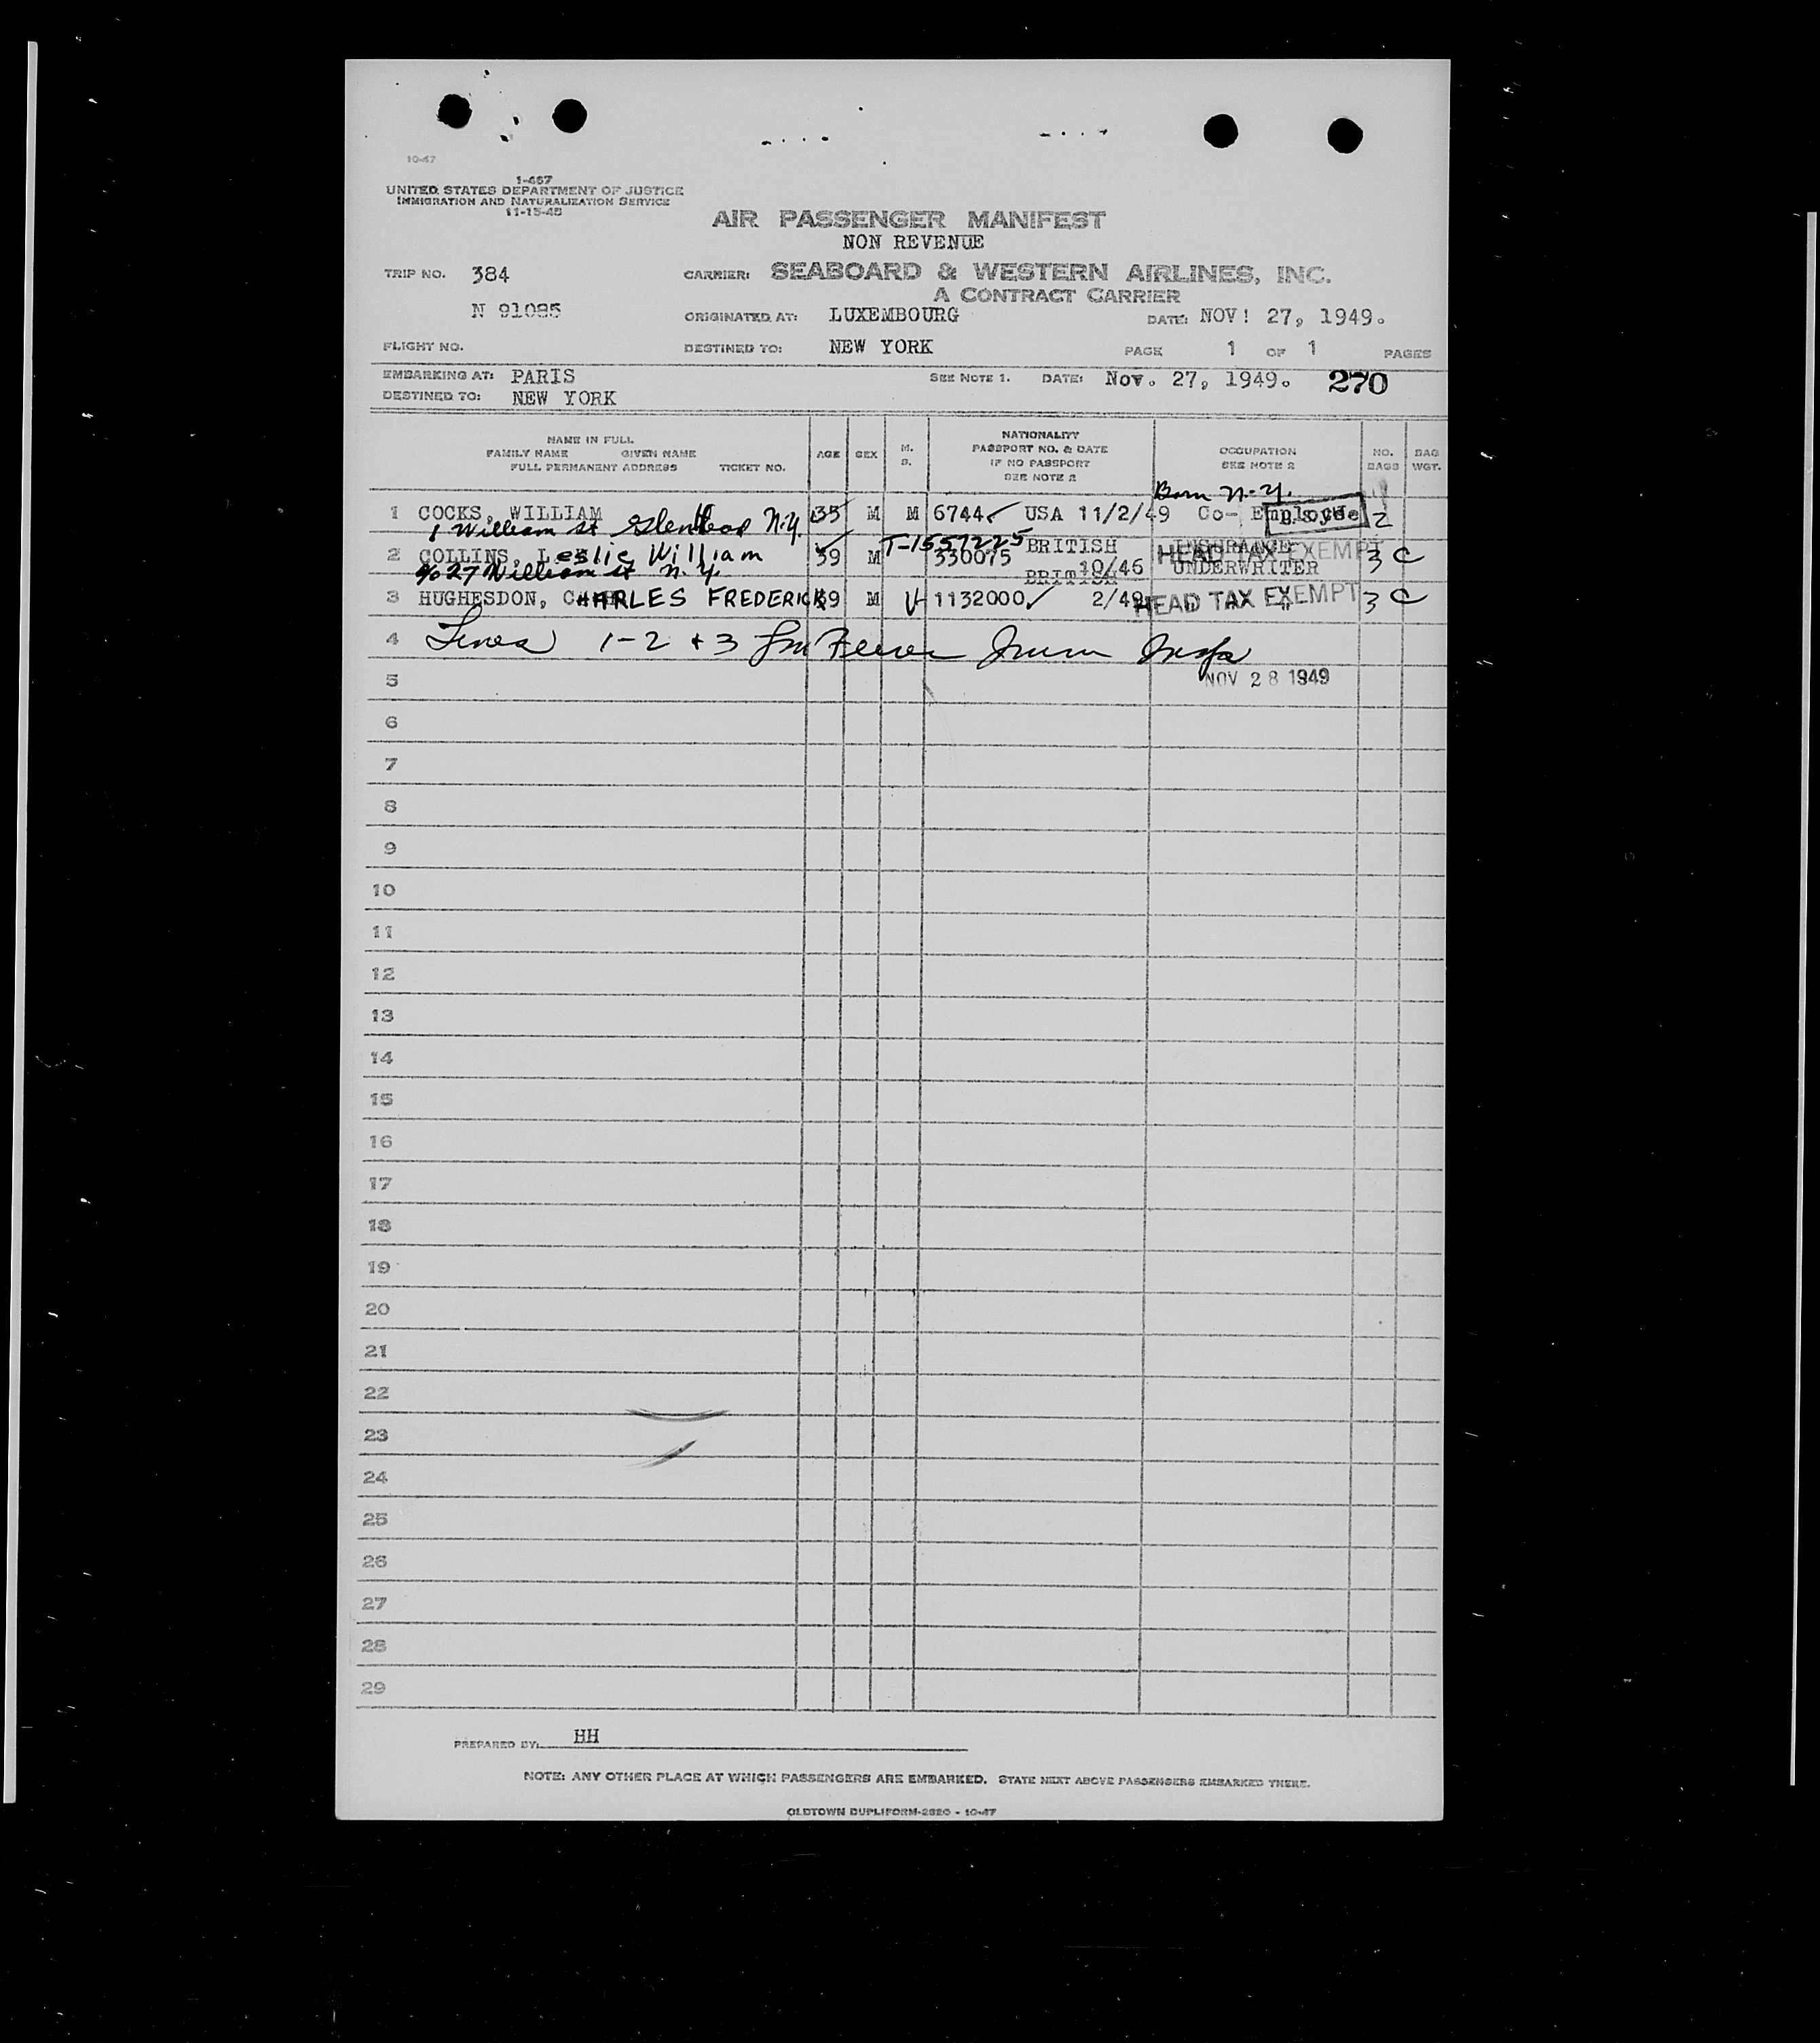 10-47
1-467
UNITED STATES DEPARTMENT OF JUSTICE
IMMIGRATION AND NATURALIZATION SERVICE
11-15-45
AIR PASSENGER MANIFEST
NON REVENUE
TRIP NO. 384
CARRIER: SEABOARD & WESTERN AIRLINES, INC.
A CONTRACT CARRIER
N 91085
ORIGINATED AT: LUXEMBOURG DATE: NOV! 27, 1949.
FLIGHT NO. DESTINED TO: NEW YORK PAGE 1 OF 1 PAGES
EMBARKING AT: PARIS SEE NOTE 1. DATE: Nov. 27, 1949. 270
DESTINED TO: NEW YORK
NAME IN FULL
FAMILY NAME GIVEN NAME
FULL PERMANENT ADDRESS TICKET NO.
AGE SEX M. S.
NATIONALITY
PASSPORT NO. & DATE
IF NO PASSPORT
SEE NOTE 2
OCCUPATION
SEE NOTE 2
NO. BAGS
BAG WGT.
Born N.Y.
1 COCKS, WILLIAM 35 M M 6744 USA 11/2/49 Co- Employee 2
1 William St Glenhead N.Y.
T-1557225 BRITISH INSURANCE
2 COLLINS, Leslie William 39 M 330075 10/46 UNDERWRITER HEAD TAX EXEMPT 3 C
c/o 27 William St N.Y.
BRITISH
3 HUGHESDON, CHARLES FREDERICK 39 M 1132000 2/49 " " HEAD TAX EXEMPT 3 C
4 Lines 1-2 + 3 Immn Insp
5 NOV 28 1949
6
7
8
9
10
11
12
13
14
15
16
17
18
19
20
21
22
23
24
25
26
27
28
29
PREPARED BY: HH
NOTE: ANY OTHER PLACE AT WHICH PASSENGERS ARE EMBARKED. STATE NEXT ABOVE PASSENGERS EMBARKED THERE.
OLDTOWN DUPLIFORM-2820 - 10-47